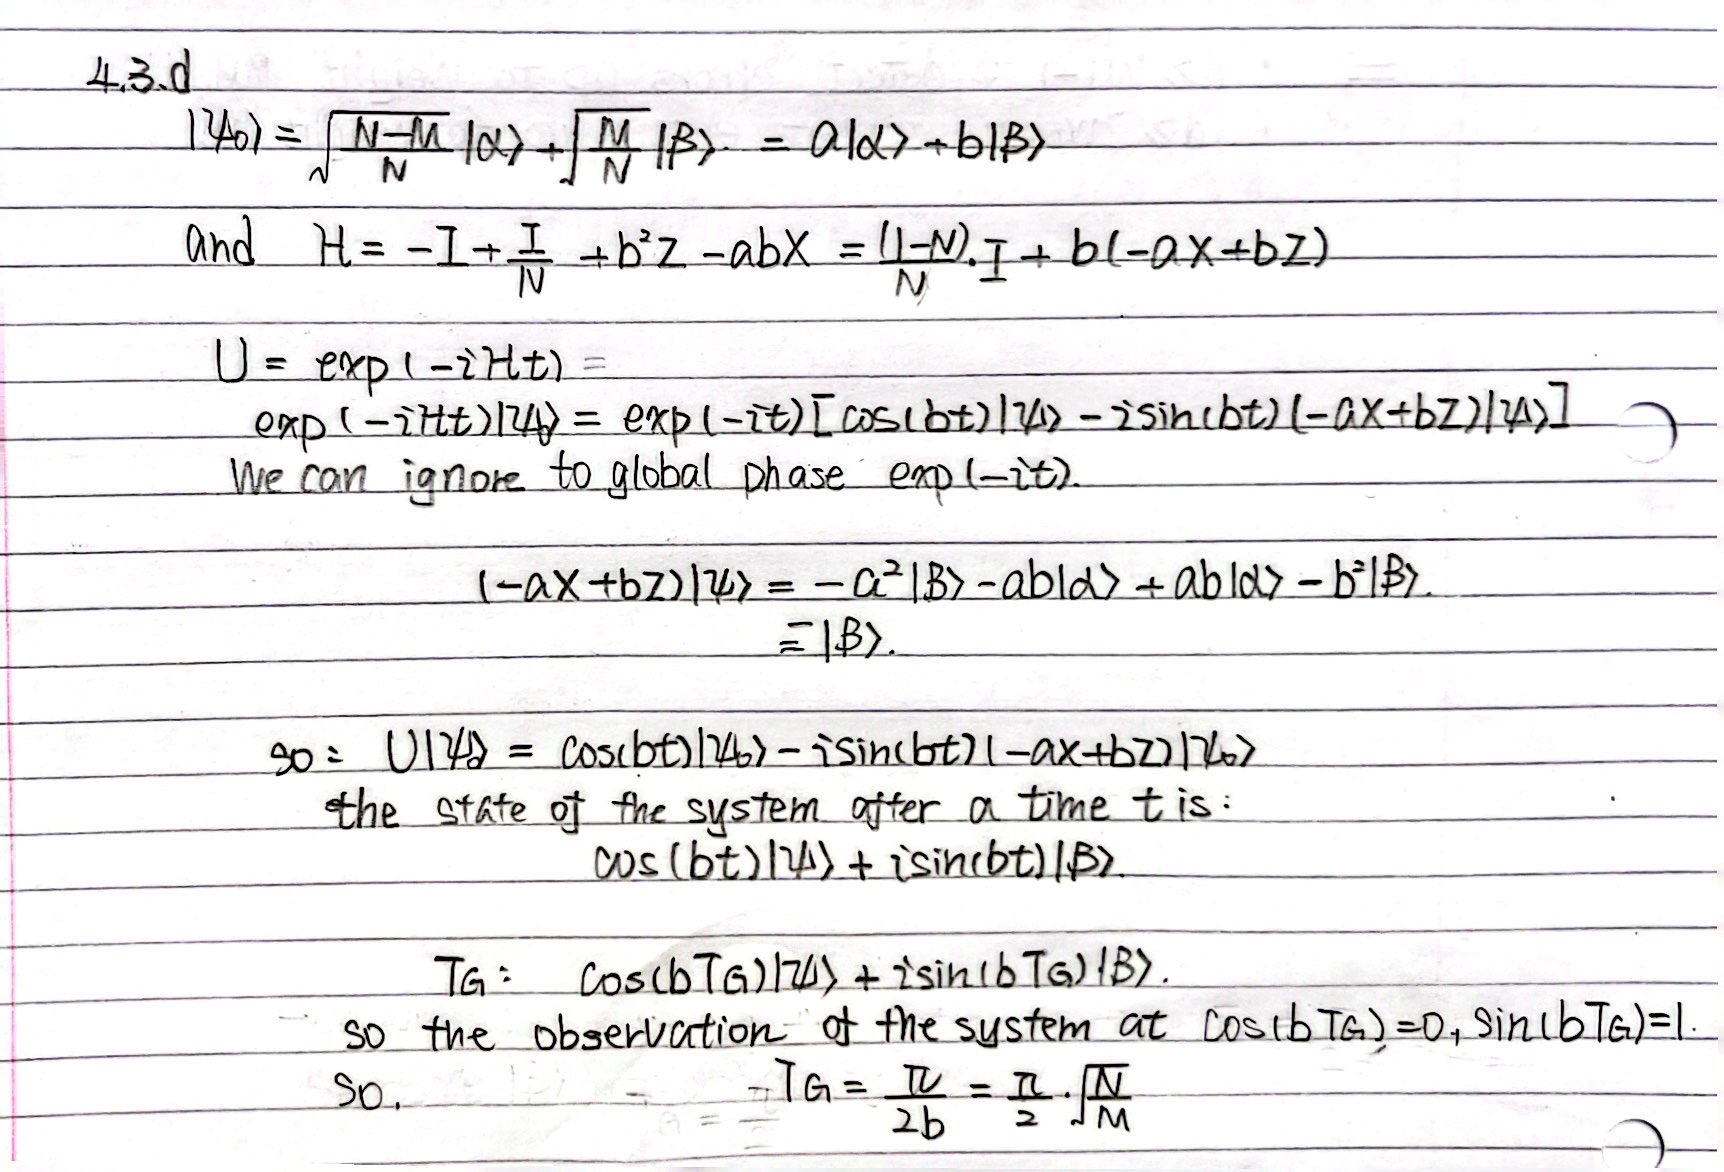 4.3.d
|ψ₀⟩ = √((N-M)/N) |α⟩ + √(M/N) |β⟩. = a|α⟩ + b|β⟩
and H = -I + I/N + b²Z - abX = (1-N)/N · I + b(-aX+bZ)
U = exp(-iHt) =
exp(-iHt)|ψ₀⟩ = exp(-it)[cos(bt)|ψ⟩ - isin(bt)(-aX+bZ)|ψ⟩]
We can ignore to global phase exp(-it).
(-aX+bZ)|ψ⟩ = -a²|β⟩ - ab|α⟩ + ab|α⟩ - b²|β⟩.
= -|β⟩.
so: U|ψ₀⟩ = cos(bt)|ψ₀⟩ - isin(bt)(-aX+bZ)|ψ₀⟩
the state of the system after a time t is:
cos(bt)|ψ⟩ + isin(bt)|β⟩.
TG: cos(bTG)|ψ⟩ + isin(bTG)|β⟩.
so the observation of the system at cos(bTG)=0, sin(bTG)=1.
So. TG = π/2b = π/2 · √(N/M)